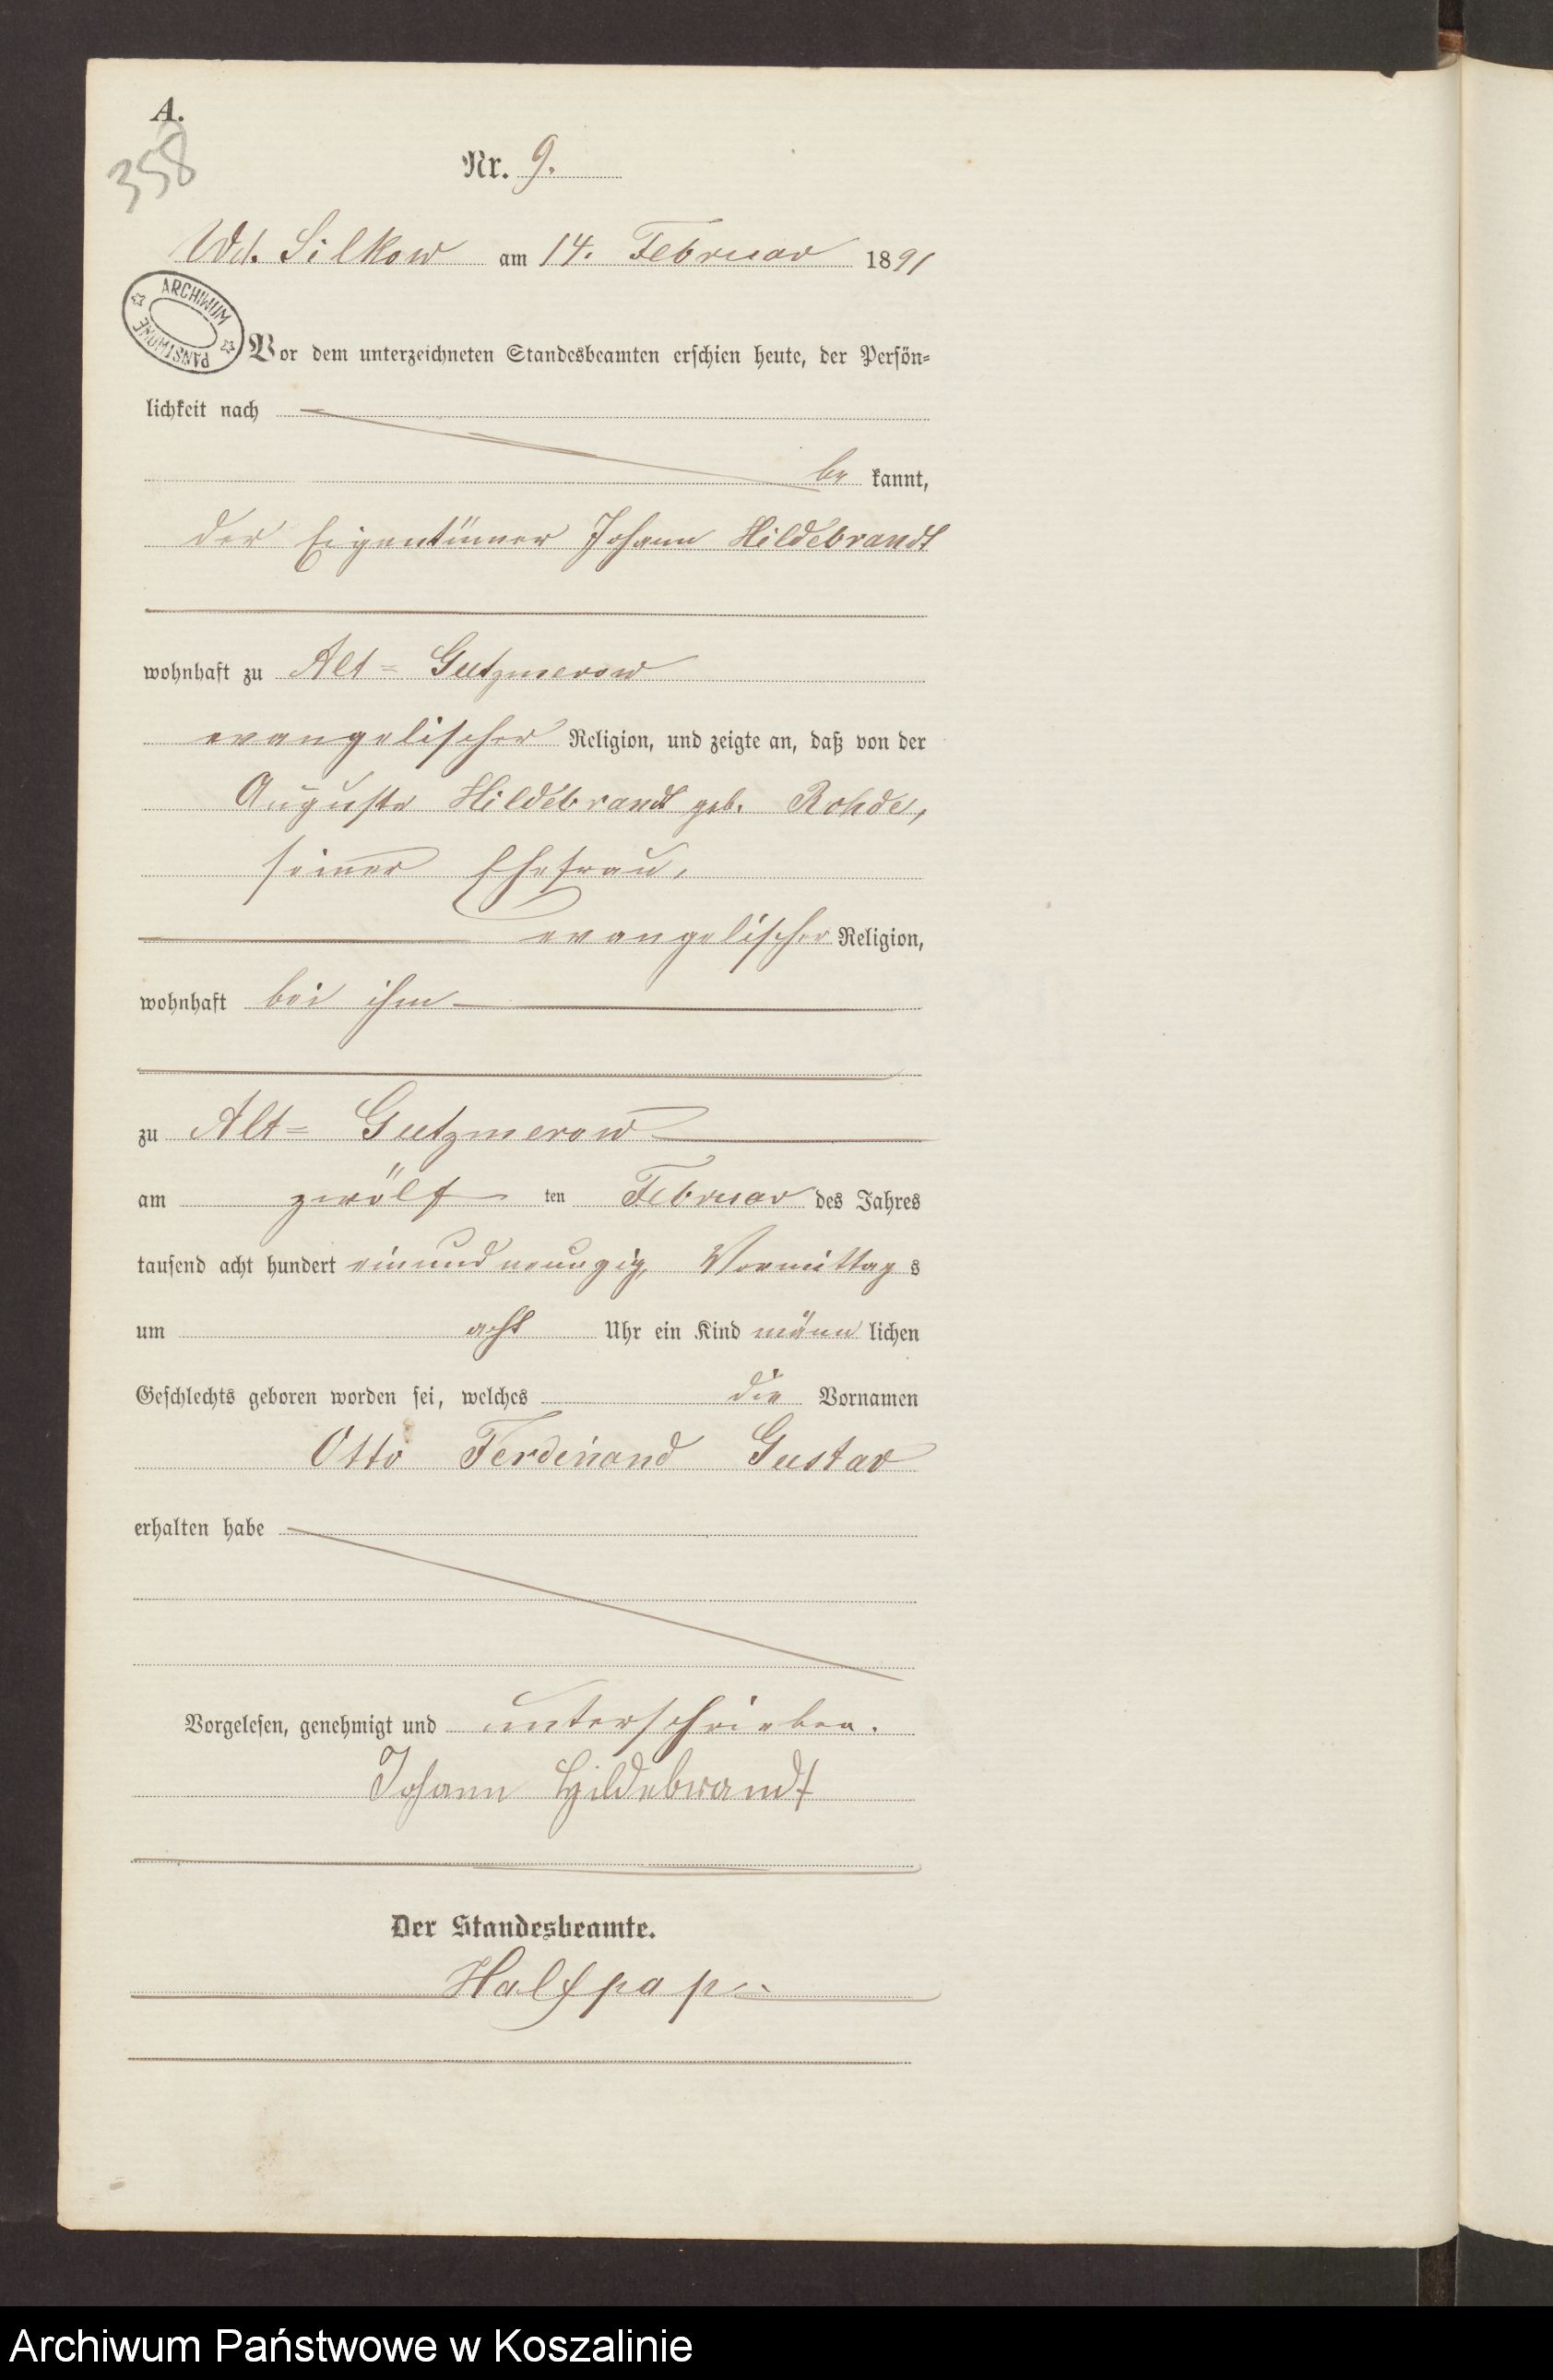 A.
358
Nr. 9.
Wd. Silkow am 14. Februar 1891
ARCHIWUM PAŃSTWOWE
Vor dem unterzeichneten Standesbeamten erschien heute, der Persön-
lichkeit nach
be kannt,
der Eigentümer Johann Hildebrandt
wohnhaft zu Alt- Gutzmerow
evangelischer Religion, und zeigte an, daß von der
Auguste Hildebrandt geb. Rohde,
seiner Ehefrau,
evangelischer Religion,
wohnhaft bei ihm
zu Alt- Gutzmerow
am zwölf ten Februar des Jahres
tausend acht hundert einundneunzig, Vormittag s
um acht Uhr ein Kind männ lichen
Geschlechts geboren worden sei, welches die Vornamen
Otto Ferdinand Gustav
erhalten habe
Vorgelesen, genehmigt und unterschrieben.
Johann Hildebrandt
Der Standesbeamte.
Halfpap
Archiwum Państwowe w Koszalinie